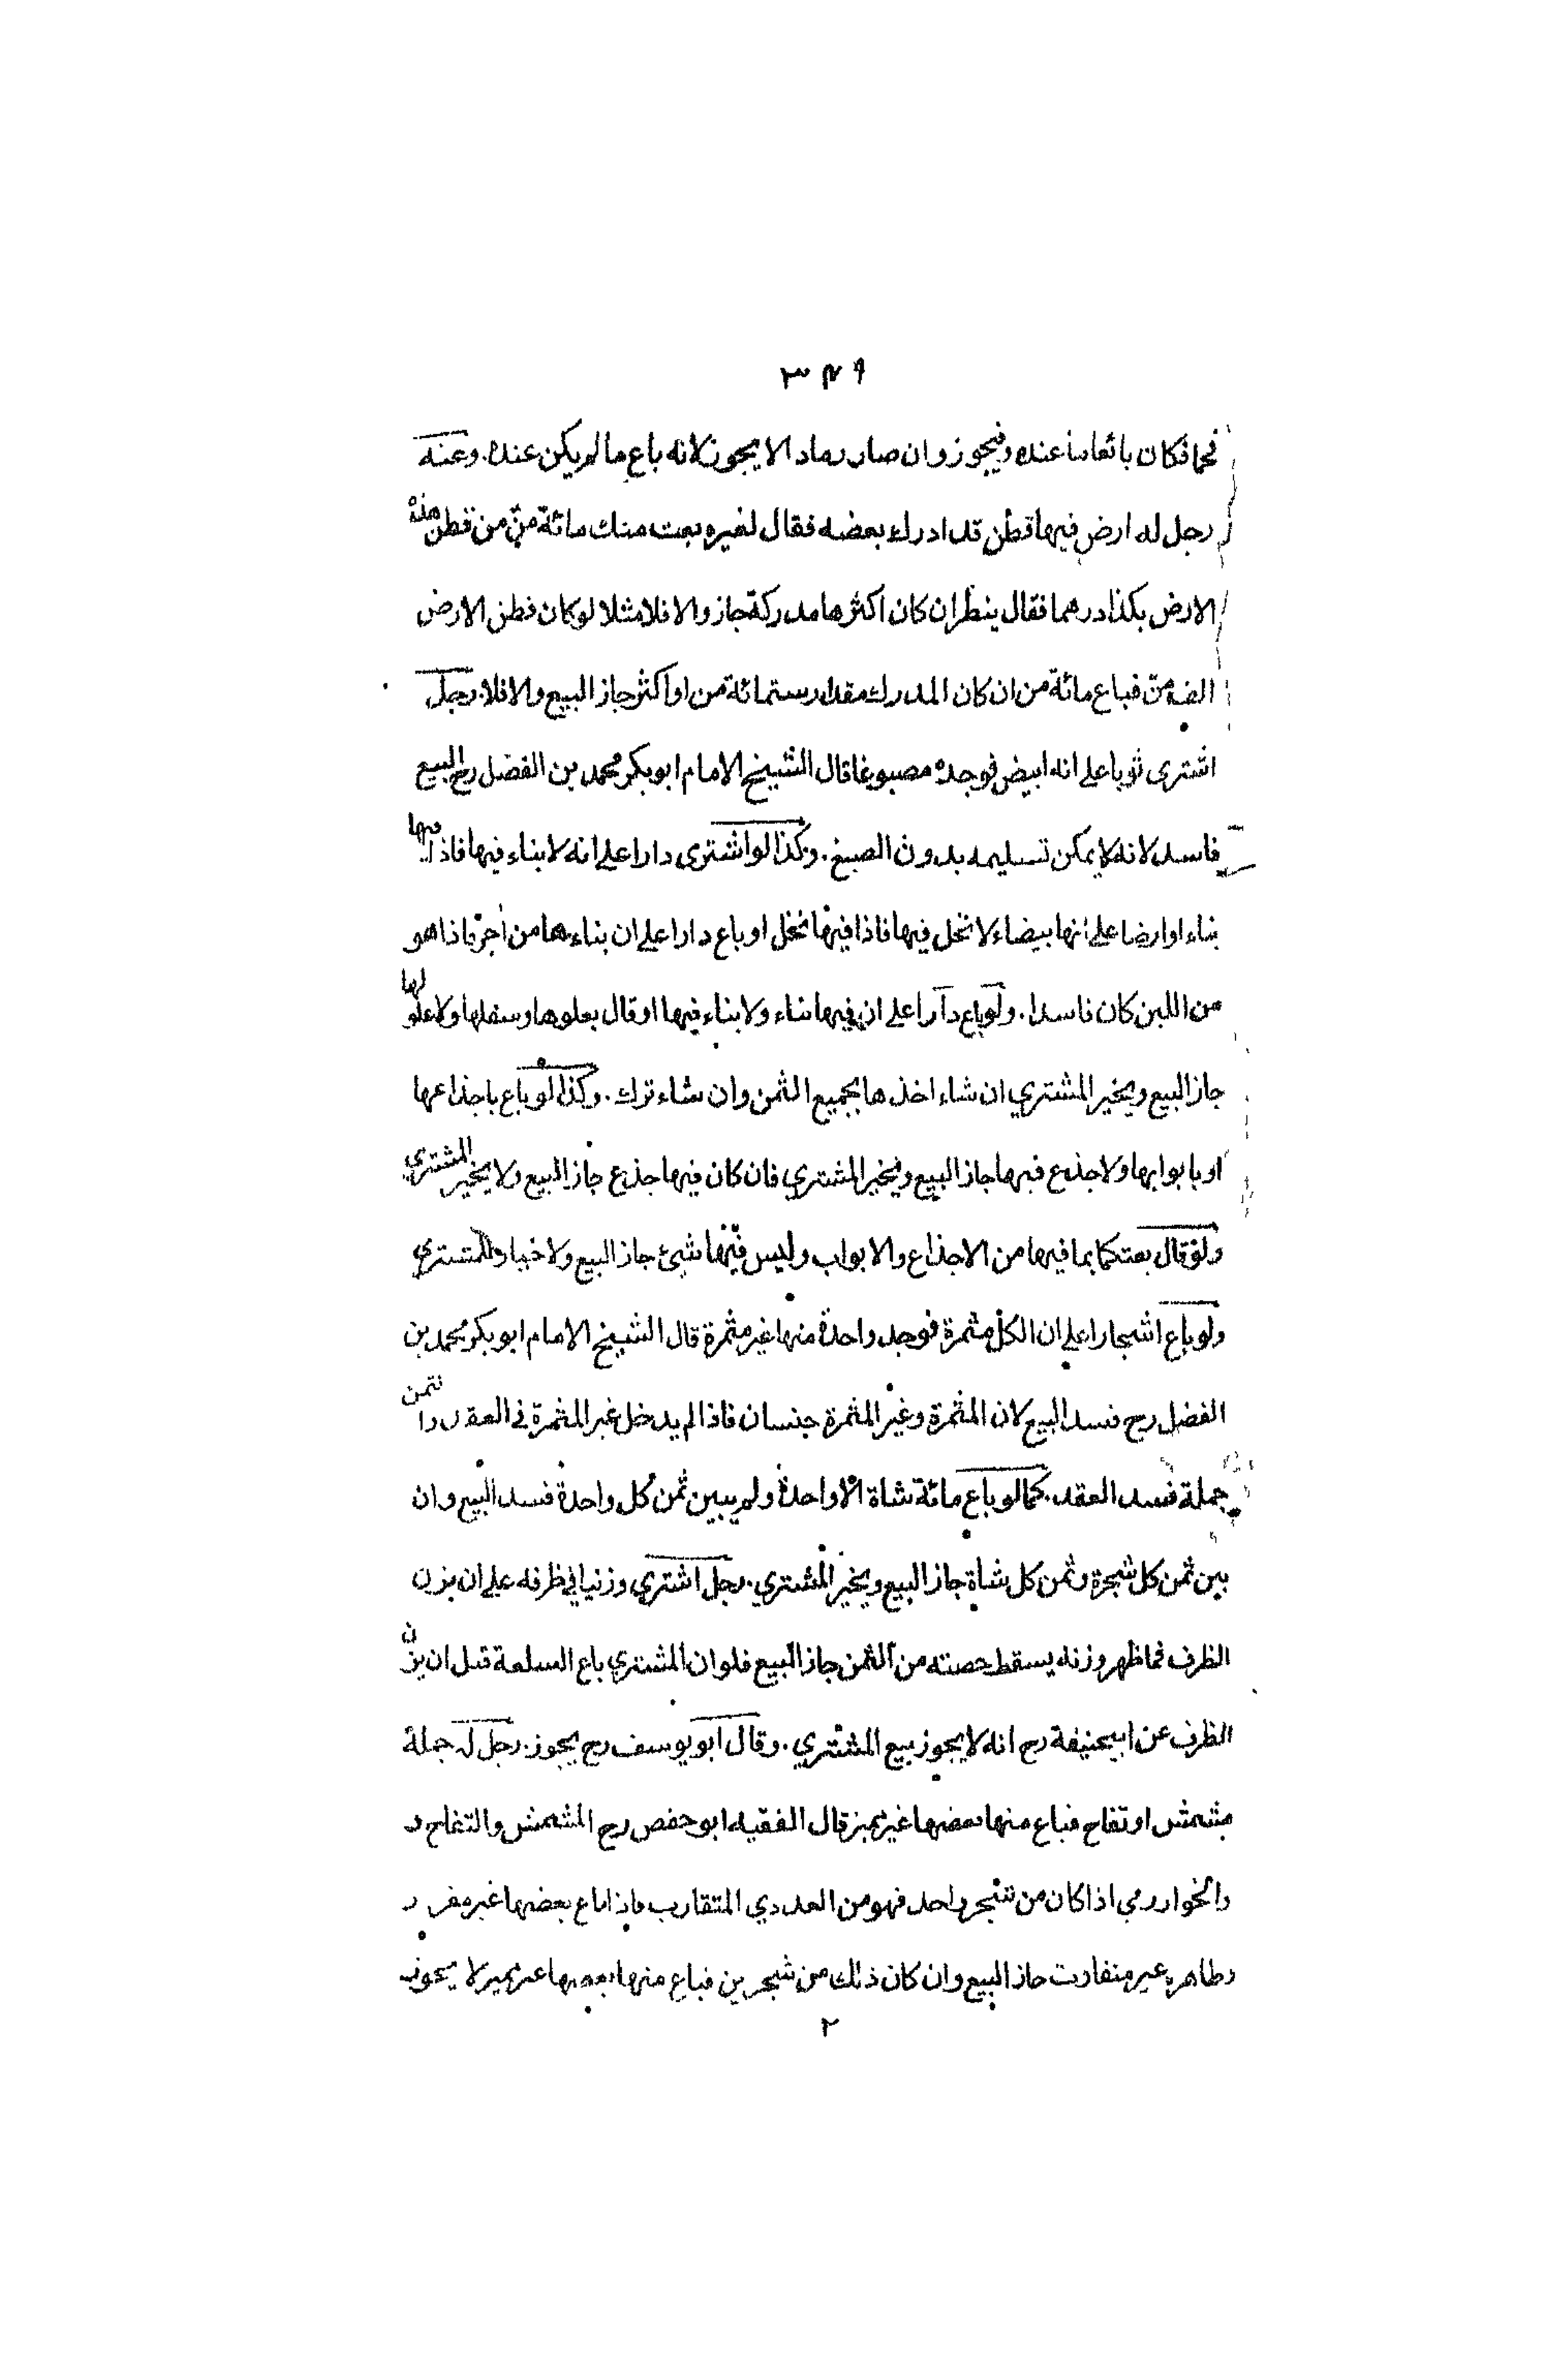 ٣٤٩
فحما فكان بائعا ما عنده فيجوز وان صار رمادا لا يجوز لانه باع ما لم يكن عنده. وعنه
رجل له ارض فيها قطن قد ادرك بعضه فقال لغيره بعت منك مائة منّ من قطن هذه
الارض بكذا درهما فقال ينظر ان كان اكثرها مدركة جاز والا فلا مثلا لو كان قطن الارض
الف منّ فباع مائة من ان كان المدرك مقدار ستمائة من او اكثر جاز البيع والا فلا. رجل
اشترى ثوبا على انه ابيض فوجده مصبوغا قال الشيخ الامام ابو بكر محمد بن الفضل رح البيع
فاسد لانه لا يمكن تسليمه بدون الصبغ. وكذا لو اشترى دارا على انه لا بناء فيها فاذا فيها
بناء او ارضا على انها بيضاء لا نخل فيها فاذا فيها نخل او باع دارا على ان بناءها من اجر فاذا هو
من اللبن كان فاسدا. ولو باع دارا على ان فيها بناء ولا بناء فيها او قال بعلوها وسفلها ولا علو لها
جاز البيع ويخير المشتري ان شاء اخذها بجميع الثمن وان شاء ترك. وكذا لو باع باجذاعها
او بابوابها ولا جذع فيها جاز البيع ويخير المشتري فان كان فيها جذع جاز البيع ولا يخير المشتري
ولو قال بعتكما بما فيها من الاجذاع والابواب وليس فيها شيئ جاز البيع ولا خيار للمشتري
ولو باع اشجارا على ان الكل مثمرة فوجد واحدة منها غير مثمرة قال الشيخ الامام ابو بكر محمد بن
الفضل رح فسد البيع لان المثمرة وغير المثمرة جنسان فاذا لم يدخل غير المثمرة في العقد والثمن
جملة فسد العقد. كما لو باع مائة شاة الا واحدة ولم يبين ثمن كل واحدة فسد البيع وان
بين ثمن كل شجرة وثمن كل شاة جاز البيع ويخير المشتري. رجل اشتري وزنيا في ظرفه على ان يزن
الظرف فما ظهر وزنه يسقط حصته من الثمن جاز البيع فلو ان المشتري باع السلعة قبل ان يزن
الظرف عن ابيحنيفة رح انه لا يجوز بيع المشتري. وقال ابو يوسف رح يجوز. رجل له جملة
مشمش او تفاح فباع منها بعضها غير مميز قال الفقيه ابو حفص رح المشمش والتفاح
والخوارزمي اذا كان من شجر واحد فهو من العددي المتقارب فاذا باع بعضها غير
وظاهره غير متفاوت جاز البيع وان كان ذلك من شجرين فباع منها بعضها غير مميز لا يجوز
٢